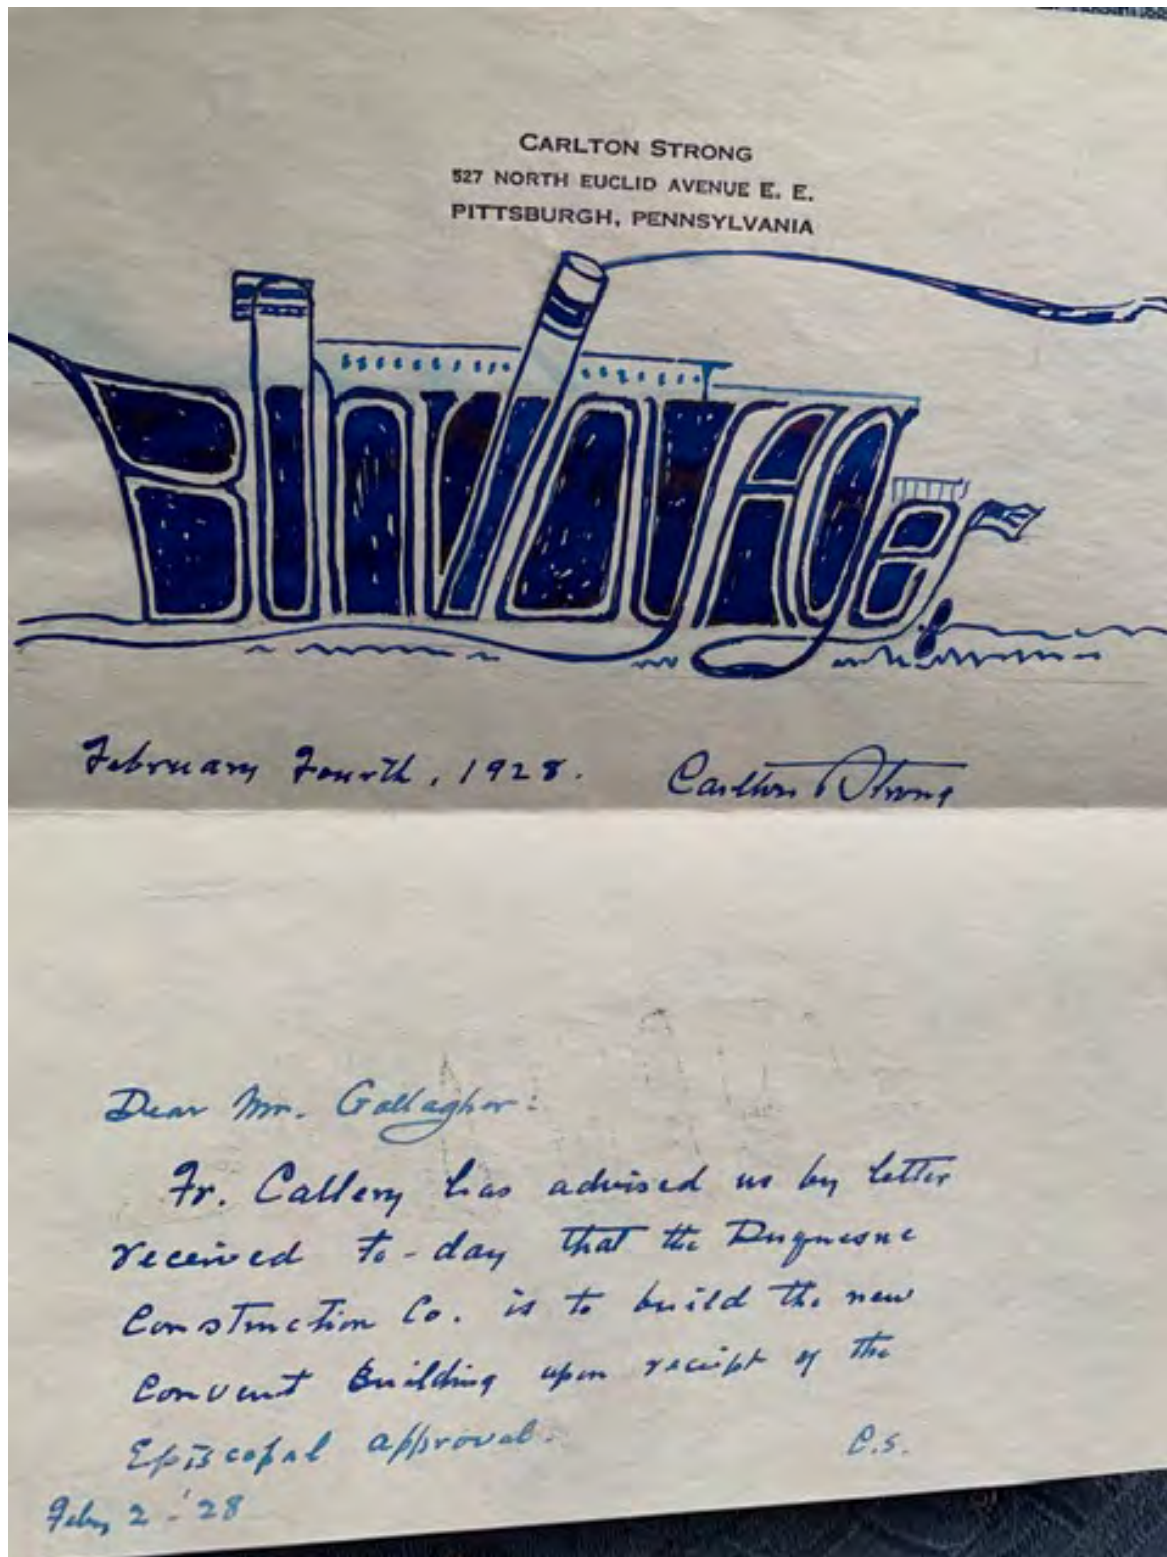 CARLTON STRONG
527 NORTH EUCLID AVENUE E. E.
PITTSBURGH, PENNSYLVANIA
BONVOYAGe
February Fourth, 1928. Carlton Strong
Dear Mr. Gallagher:
Fr. Callery has advised us by letter
received to-day that the Duquesne
Construction Co. is to build the new
Convent Building upon receipt of the
Episcopal approval. C.S.
Feby 2 - '28